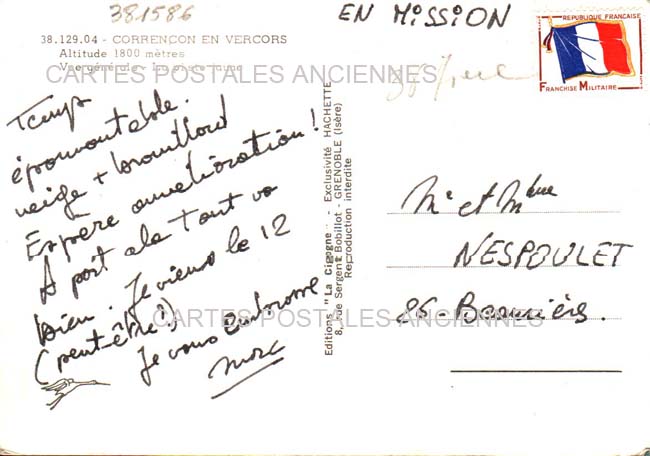 381586
EN MISSION
RÉPUBLIQUE FRANÇAISE
FRANCHISE MILITAIRE
38.129.04 - CORRENÇON EN VERCORS
Altitude 1800 mètres
Vue générale - La piste jaune
CARTES POSTALES ANCIENNES
Temps
épouvantable.
neige + brouillard
Espère amélioration!
A part cela tout va
bien. Je viens le 12
(peut-être!)
Je vous embrasse
Marc
Editions "La Cigogne" - Exclusivité HACHETTE
8, rue Sergent Bobillot - GRENOBLE (Isère)
Reproduction interdite
Mr et Mme
NESPOULET
86-
CARTES POSTALES ANCIENNES